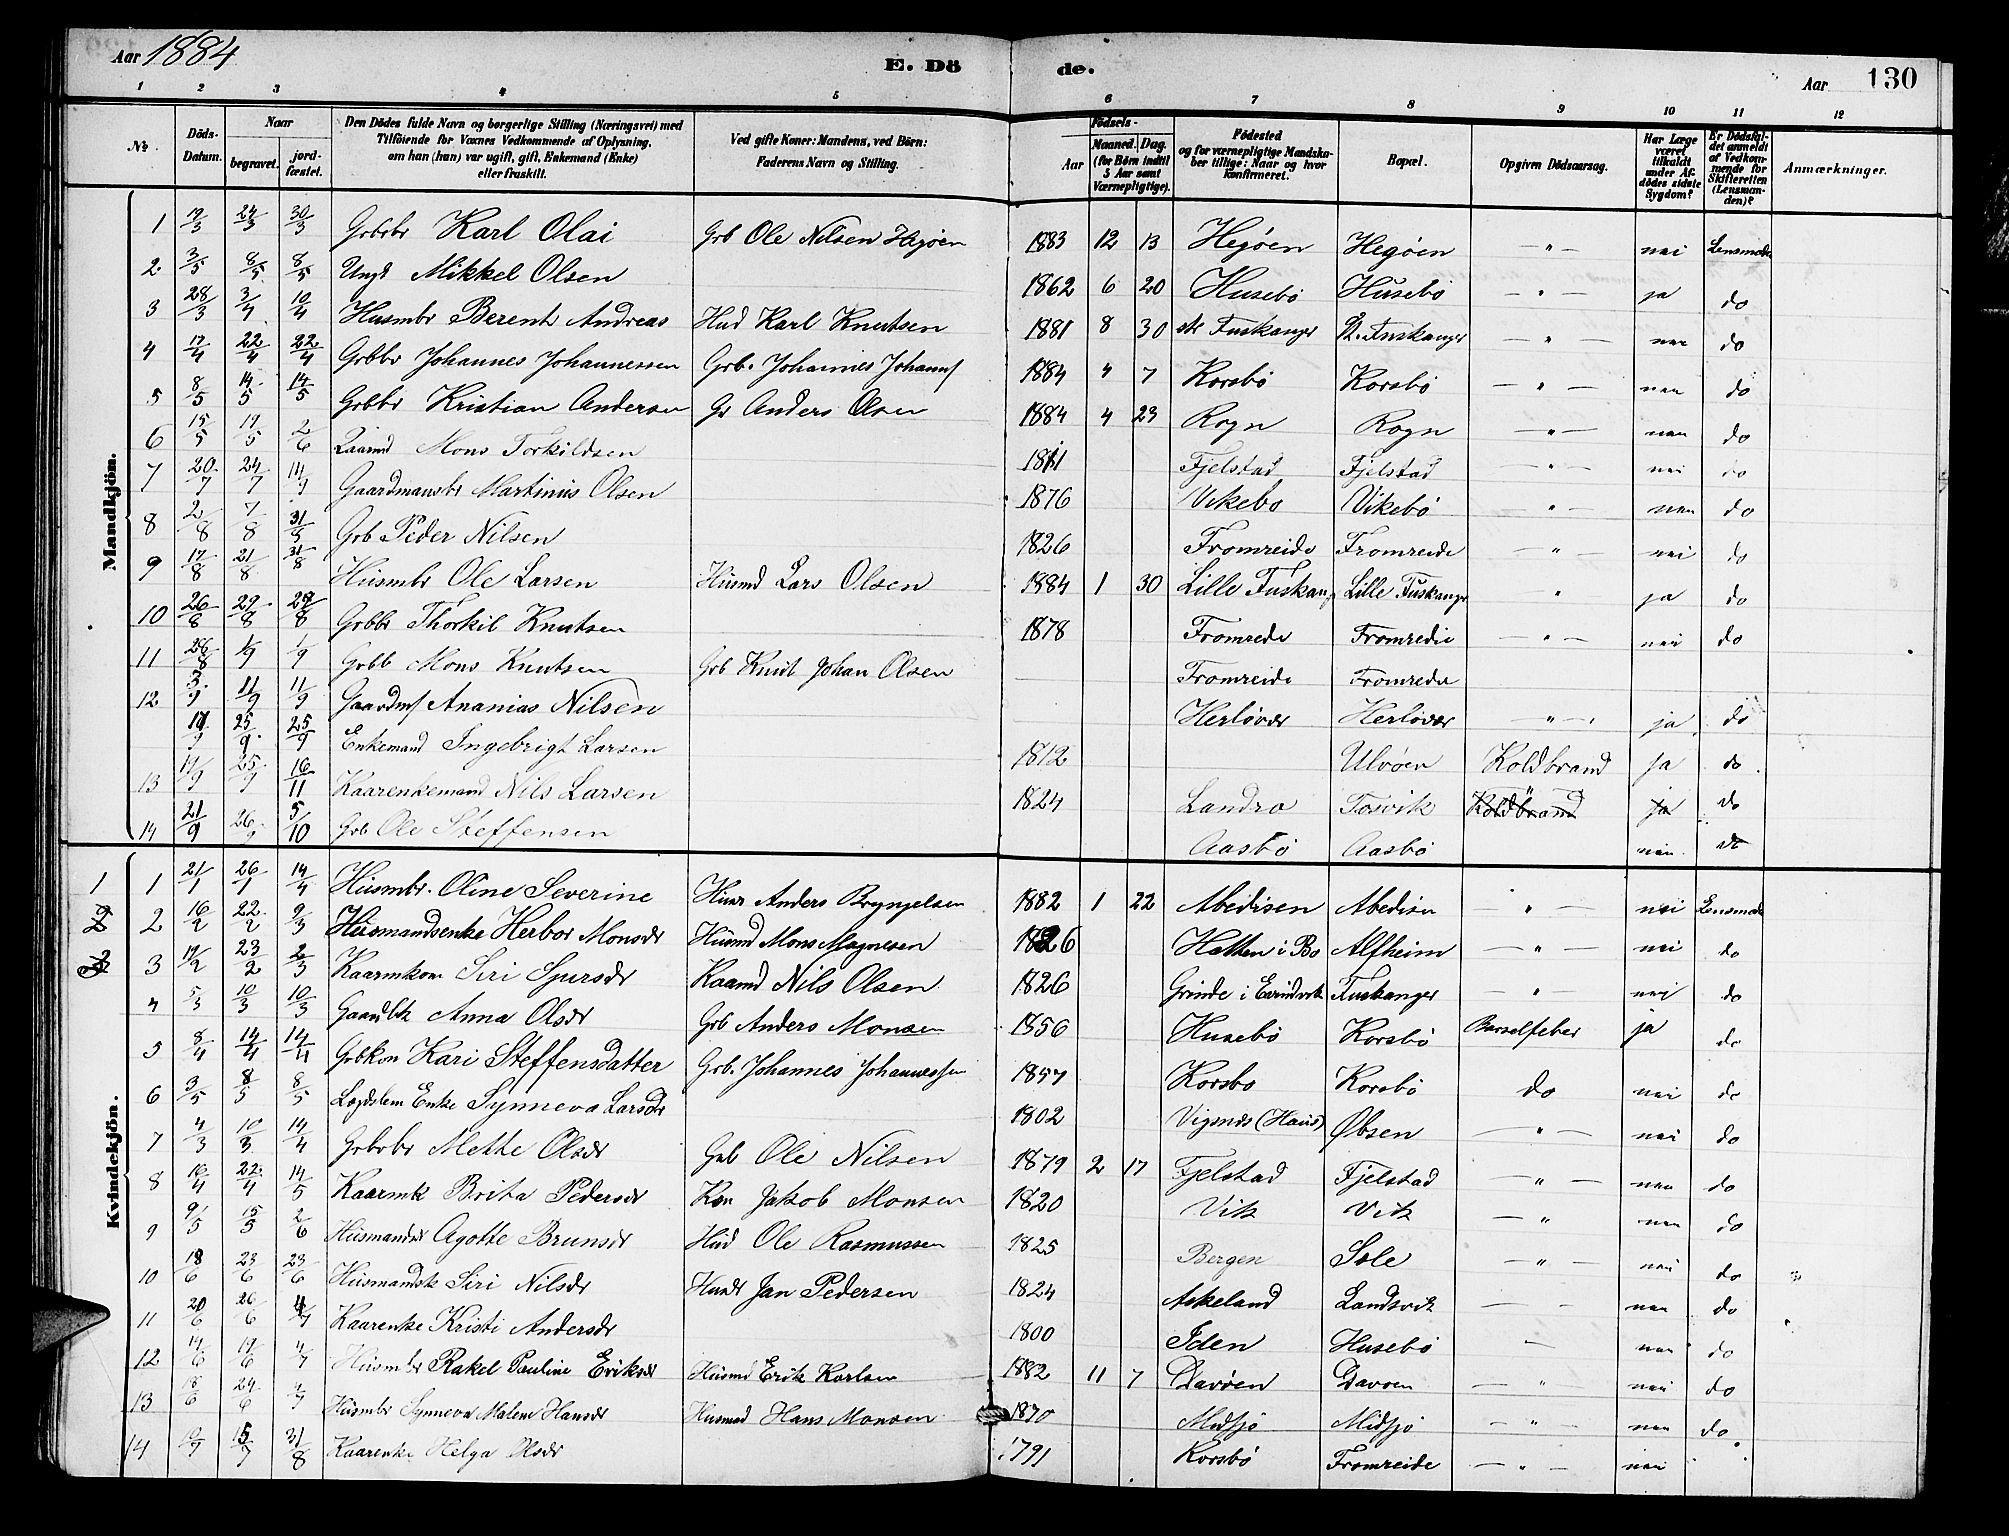 Aar 1884 E. Dö de. Aar 130
1 2 3 4 5 6 7 8 9 10 11 12
№ Döds-Datum. Naar begravet. jord-fæstet. Den Dödes fulde Navn og borgerlige Stilling (Næringsvei) med Tilföiende for Voxnes Vedkommende af Oplysning, om han (hun) var ugift, gift, Enkemand (Enke) eller fraskilt. Ved gifte Koner: Mandens, ved Börn: Faderens Navn og Stilling. Födsels- Aar Maaned. Dag. (for Börn indtil 5 Aar samt Værnepligtige). Födested og for værnepligtige Mandskaber tillige: Naar og hvor konfirmeret. Bopæl. Opgiven Dödsaarsag. Har Læge været tilkaldt under Afdödes sidste Sygdom? Er Dödsfaldet anmeldt af Vedkommende for Skifteretten (Lensmanden)? Anmærkninger.
Mandkjön.
1 19/3 24/3 30/3 Grbrbr Karl Olai Grb Ole Nilsen Hegöen 1883 12 13 Hegöen Hegöen — " — nei Lensmden
2 3/5 8/5 8/5 Ungk Mikkel Olsen 1862 6 20 Husebö Husebö — " — ja do
3 28/3 3/4 10/4 Husmbr Berent Andreas Hud Karl Knutsen 1881 8 30 str Fuskanger St. Fuskanger — " — nei do
4 17/4 22/4 22/4 Grbbr Johannes Johannessen Grb. Johannes Johannes 1884 " 7 Korsbö Korsbö — " — nei do
5 8/5 14/5 14/5 Grbbr Kristian Andersen Gr Anders Olsen 1884 4 23 Rogn Rogn — " — nei do
6 15/5 19/5 2/6 Mons Torkildsen 1811 Fjelstad Fjelstad — " — nei do
7 20/7 24/7 Gaardmansbr Martinus Olsen 1876 Vikebö Vikebö — " — nei do
8 2/8 7/8 31/ Grb Peder Nilsen 1826 Fromreide Fromreide — " — nei do
9 17/8 21/8 31/8 Husmbr Ole Larsen Husmd Lars Olsen 1884 1 30 Lille Fuskang Lille Fuskanger " ja do
10 26/8 29/8 29/8 Grbbr Thorkil Knutsen 1878 Fromrede Fromredie — " — nei do
11 26/8 1/9 1/9 Grbb Mons Knutsen Grb Knut Johan Olsen Fromreide Fromrede
12 3/9 11/9 11/9 Gaardm Ananias Nilsen Herlövær Herlövær — " — ja do
17/9 25/9 25/9 Enkemand Ingebrigt Larsen 1812 Ulvöen Koldbrand ja do
13 19/9 25/9 16/11 Kaarenkemand Nils Larsen 1824 Landro Tosvik Koldbrand ja do
14 21/9 26/9 5/10 Grb Ole Steffensen Aasbö Aasbö nei do
Kvindekjön.
1 1 21/1 26/1 14/4 Husmbr. Oline Severine Husr Anders Brynjelsen 1882 1 22 Abedisen Abedisen " — nei Lensmde
2 2 16/2 22/2 9/3 Husmandsenke Herbor Monsdr Husmd Mons Magnesen 1826 Hatten i Bo Alfheim — " — nei do
3 3 19/2 23/2 2/3 Kaarmkom Siri Sjursdr Kaarmd Nils Olsen 1826 Grinde i Evindvik Fuskanger — " nei do
4 5/3 10/3 10/3 Anna Olsdr Grb Anders Monsen 1856 Husebö Korsbö Barselfeber ja do
5 8/4 14/4 14/4 Grbkon Kari Steffensdatter Grb. Johannes Johannessen 1857 Korsbo Korsbö do nei do
6 3/5 8/5 8/5 Lægdslem Enke Synneva Larsdr 1802 Vigsnes (Haus) Øbsen — " — nei do
7 4/3 10/3 14/4 Grbrbr Mette Olsdr Grb Ole Nilsen 1879 2 17 Fjelstad Fjelstad — " — nei do
8 16/4 22/4 14/5 Kaarmk Brita Pedersdr Kon Jakob Monsen 1820 Vik Vik — " nei do
9 9/5 15/5 2/6 Agotte Brunsdr Hud Ole Rasmussen 1825 Bergen Sole — " — nei do
10 18/6 23/6 23/6 Husmandsk Siri Nilsdr Jan Pedersen 1824 Askeland Landsvik — — nei do
11 20/6 26/6 4/7 Kaarenke Kristi Andersdr 1800 Iden Husebö — nei do
12 14/6 19/6 4/7 Husmbr Rakel Pauline Eriksdr Husmd Erik Karlsen 1882 11 7 Davöen Davöen — " nei do
13 18/6 24/6 4/7 Husmbr Synneva Malene Hansdr Husmd Hans Monsen 1870 Midsjö Midsjö — " — nei do
14 10/7 15/7 31/8 Kaarenke Helga Olsdr 1791 Korsbö Fromreide — " — nei